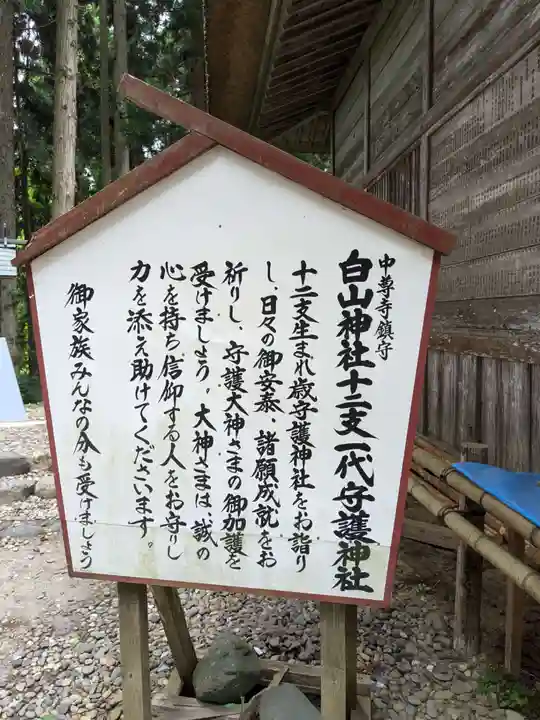 中尊寺鎮守
白山神社十二支一代守護神社
十二支生まれ歳守護神社をお詣り
し、日々の御安泰、諸願成就をお
祈りし、守護大神さまの御加護を
受けましょう。大神さまは、誠の
心を持ち、信仰する人をお守りし
力を添え助けてくださいます。
御家族みんなの分も受けましょう